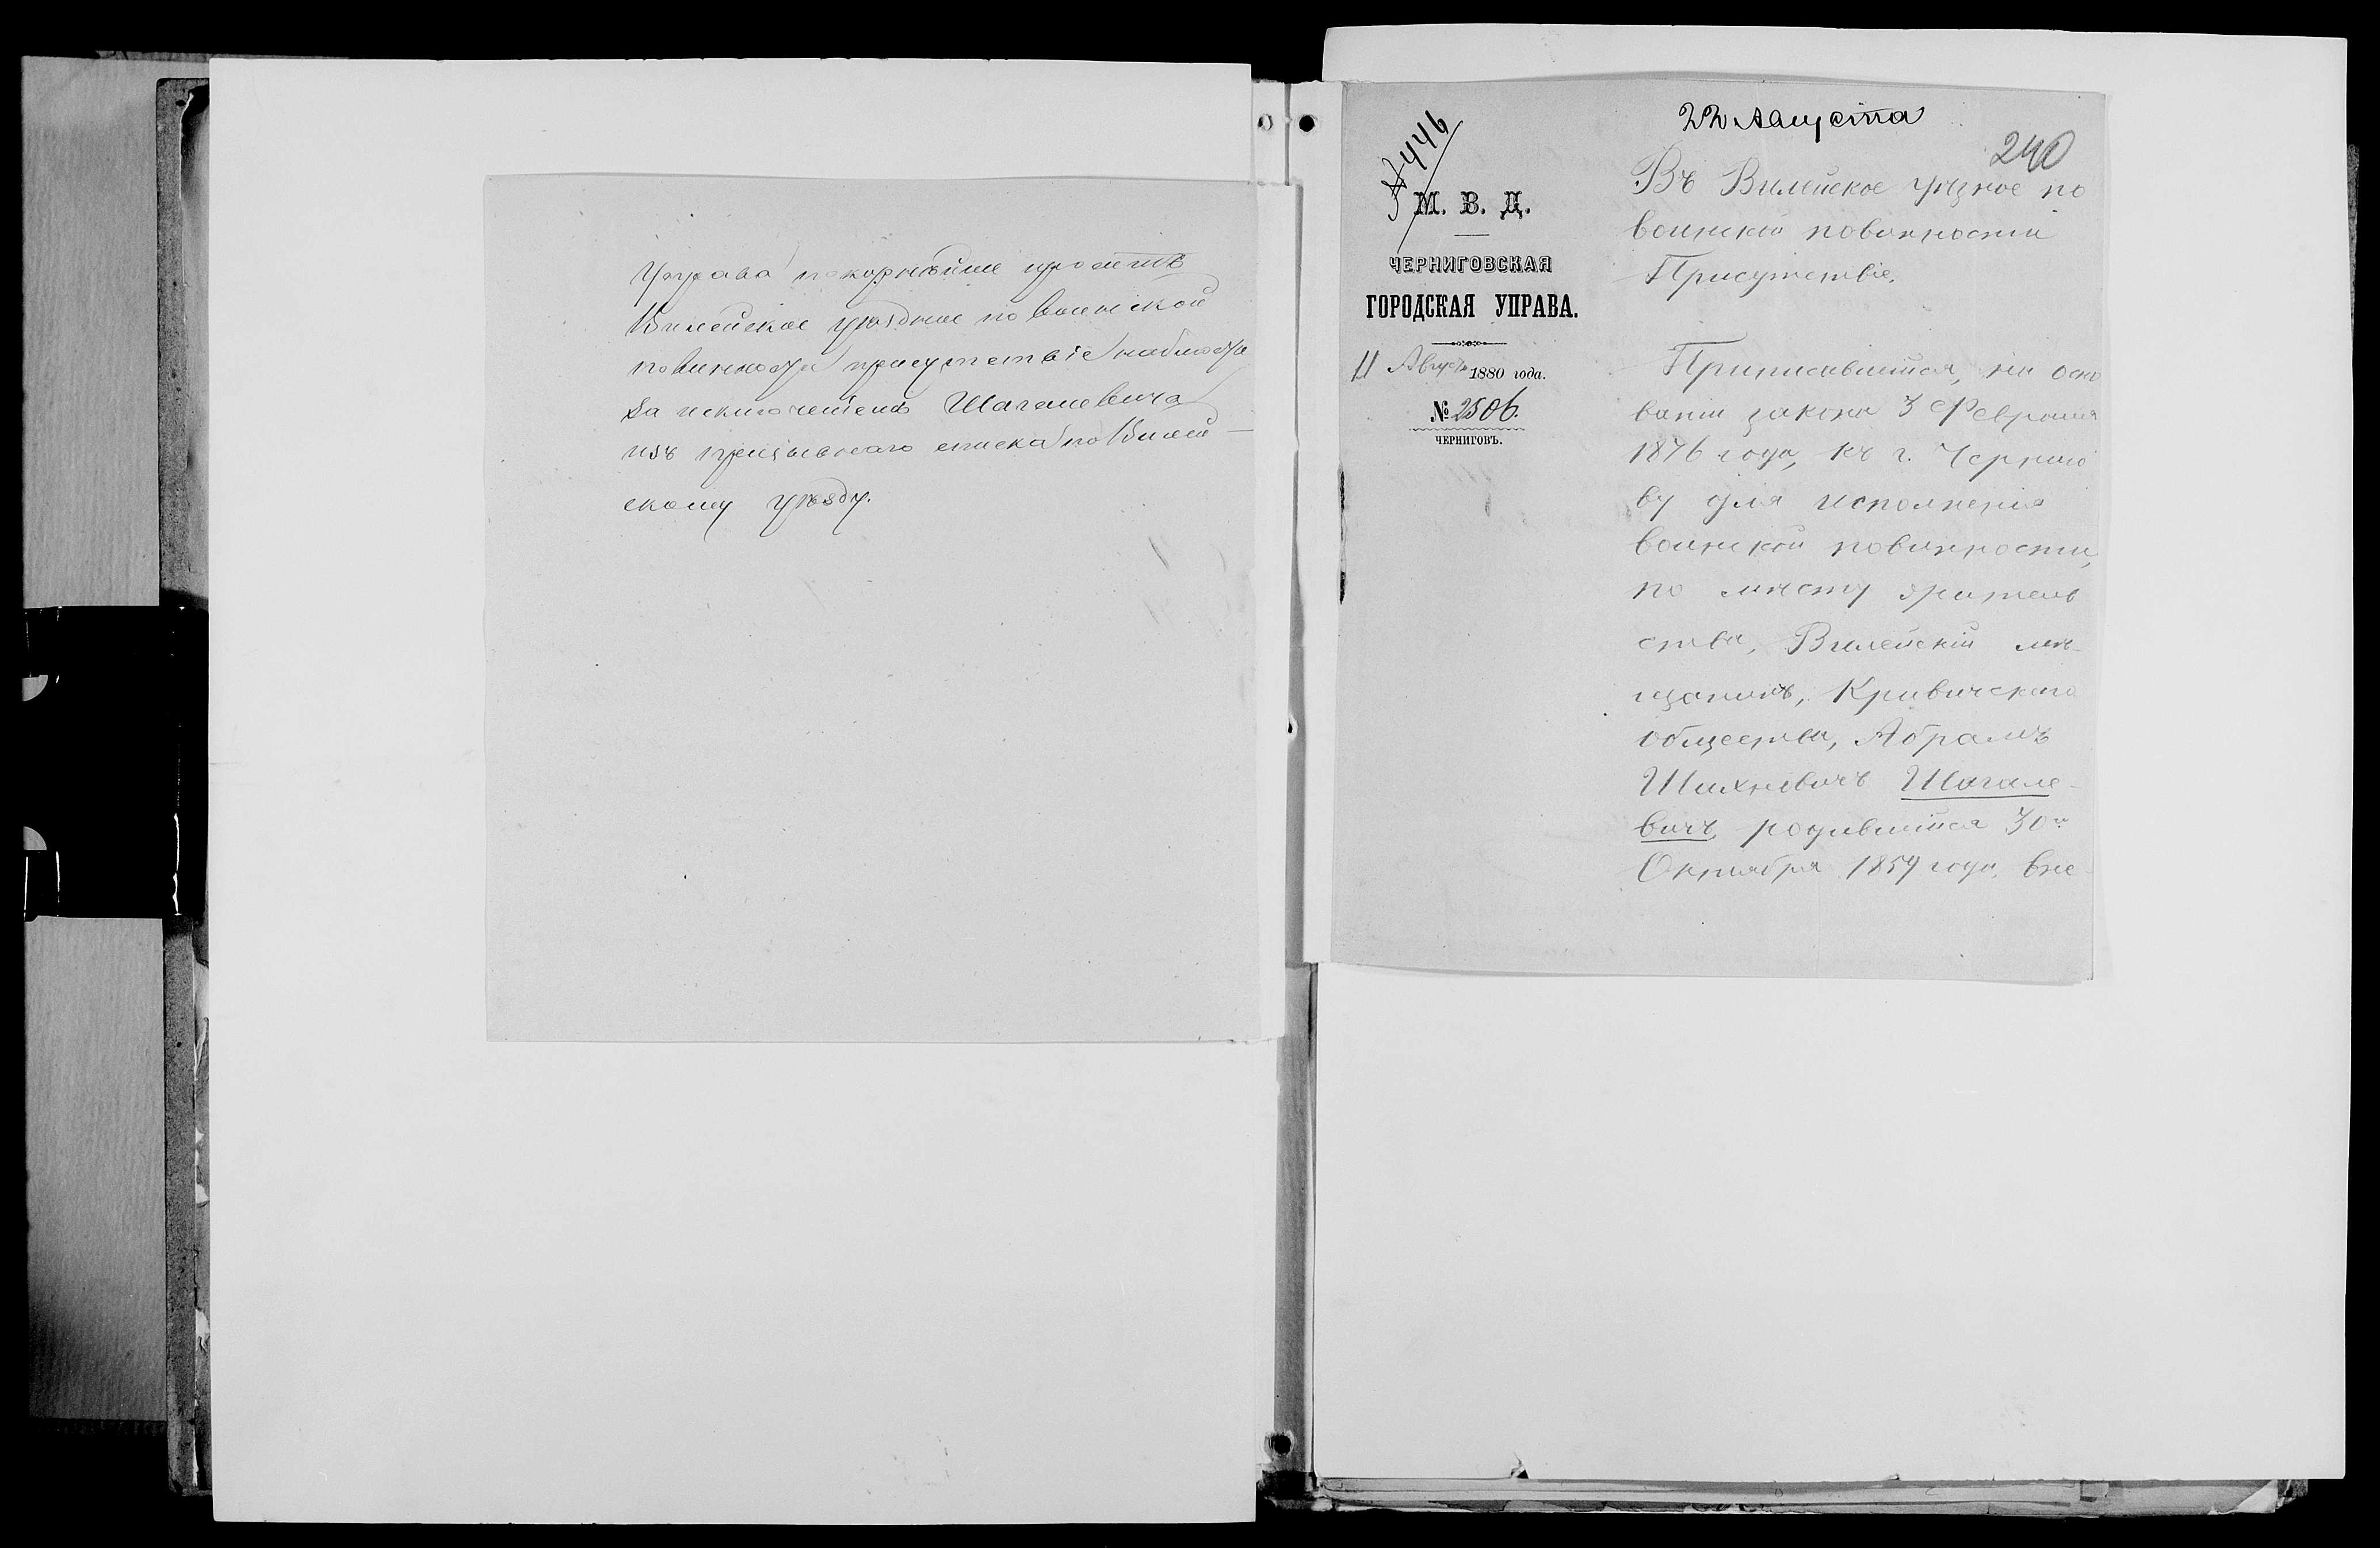 Управа покорнѣйше проситъ
Вилейское уѣздное по воинской
повинности присутствіе наблюсти
за исключеніемъ Шагалевича
изъ призывнаго списка по Вилей-
скому уѣзду.
22 Августа
240
№ 446
М. В. Д.
ЧЕРНИГОВСКАЯ
ГОРОДСКАЯ УПРАВА.
11 Августа 1880 года.
№ 2506.
ЧЕРНИГОВЪ.
Въ Вилейское уѣздное по
воинской повинности
Присутствіе.
Приписавшійся, на осно
ваніи закона 3 Февраля
1876 года, къ г. Черниго
ву для исполненія
воинской повинности,
по мѣсту жительъ
ства, Вилейскій мѣ-
щанинъ, Кривичскаго
общества, Абрамъ
Шихневичъ Шагале-
вичъ, родившійся 30го
Октября 1859 года, вне